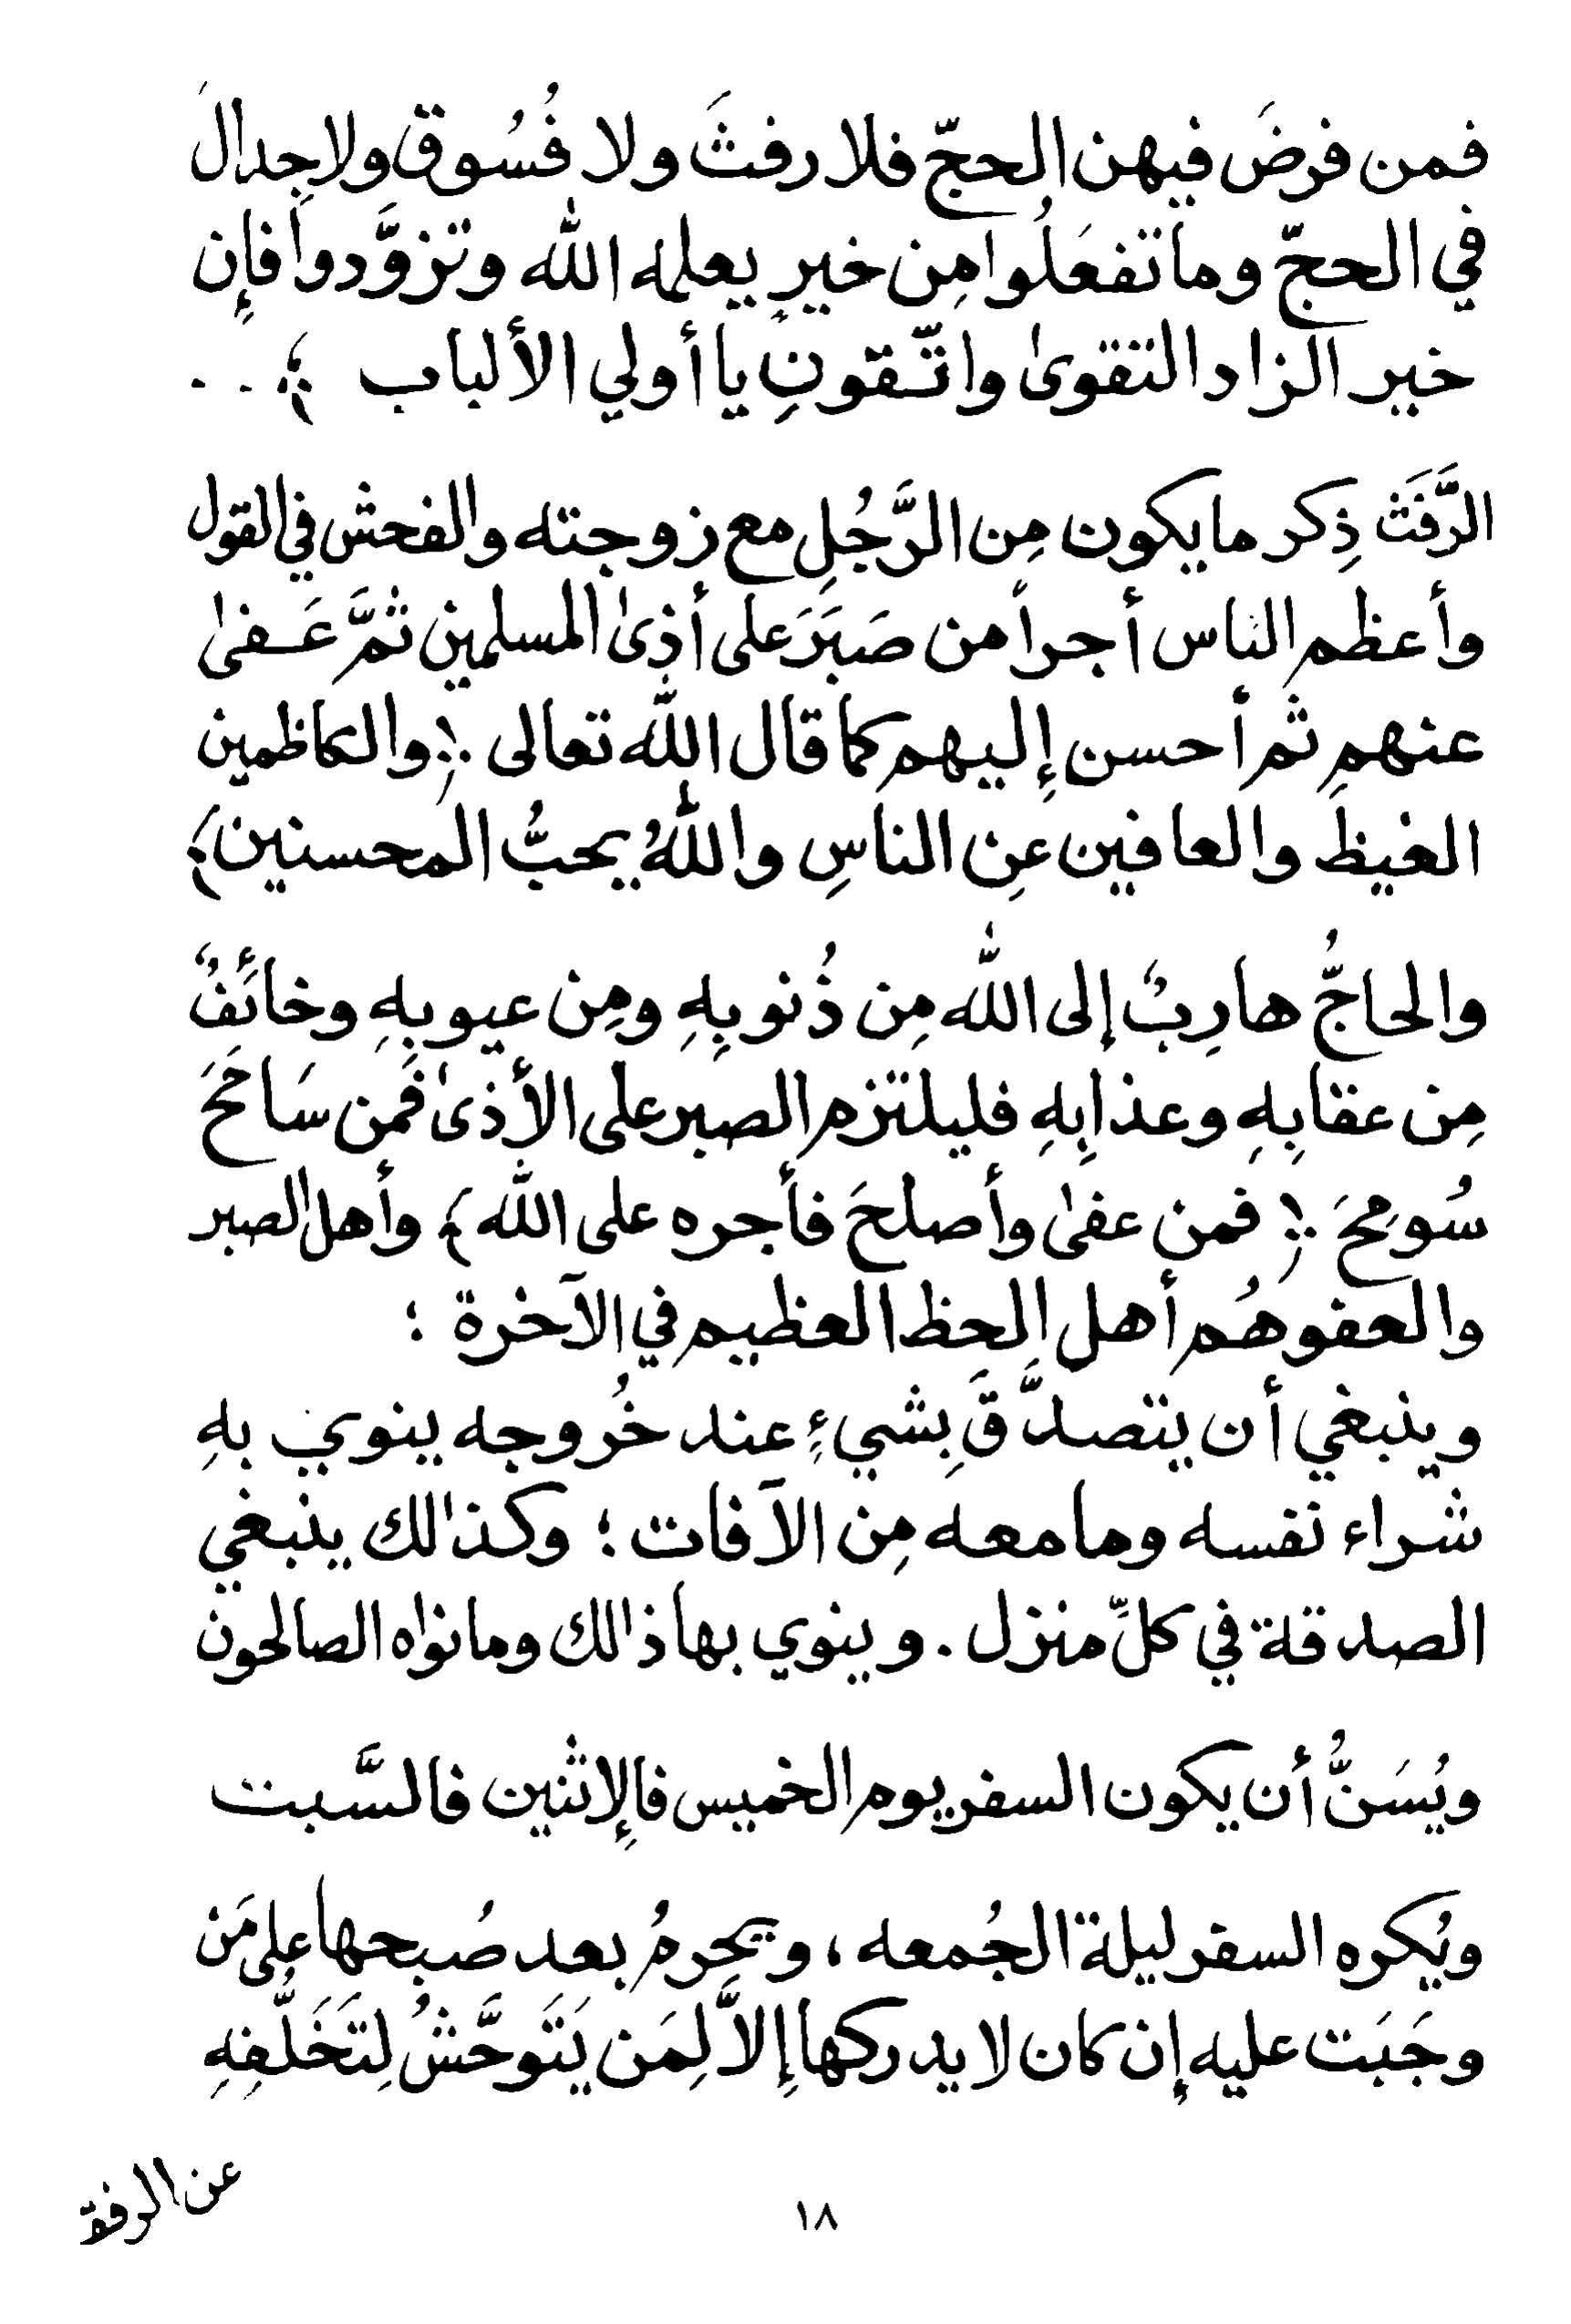 فمن فرضَ فيهن الحجّ فلا رفثَ ولا فُسُوقُ ولا جدالَ
في الحجّ وما تفعَلُوا مِن خيرٍ يعلمه الله وتزوَّدوا فإِن
خير الزاد التقوىٰ واتّقونِ يا أولي الألباب ﴾ . .
الرَّفَثَ ذِكر ما يكون مِن الرَّجُلِ مع زوجته والفحش في القول
وأعظم الناس أجراً من صَبَرَ على أذىٰ المسلمين ثمَّ عَفىٰ
عنهم ثم أحسن إِليهم كما قال الله تعالى ﴿ والكاظمين
الغيظَ والعافين عنِ الناسِ واللهُ يحبُّ المحسنين ﴾
والحاجُّ هارِبٌ إلى الله مِن ذُنوبِهِ ومِن عيوبِهِ وخائَفٌ
مِن عقابِهِ وعذابِهِ فليلتزم الصبر على الأذىٰ فَمن سَامَحَ
سُومِحَ ﴿ فمن عفىٰ وأصلحَ فأجره على الله ﴾ وأهل الصبر
والعفو هُم أهل الحظ العظيم في الآخرة ؛
وينبغي أن يتصدَّقَ بِشيءٍ عند خُروجه ينوي بهِ
شراء نفسه وما معه مِن الآفات ؛ وكذالك ينبغي
الصدقة في كلِّ منزل . وينوي بها ذالك وما نواه الصالحون
ويُسَنُّ أن يكون السفر يوم الخميس فالإِثنين فالسَّبت
ويُكره السفر ليلة الجُمعه ، ويحرمُ بعد صُبحها على مَن
وجَبَت عليه إِن كان لا يدركها إِلاَّ لِمَن يَتَوحَّشُ لِتَخَلُّفِهِ
عن الرفقة
١٨